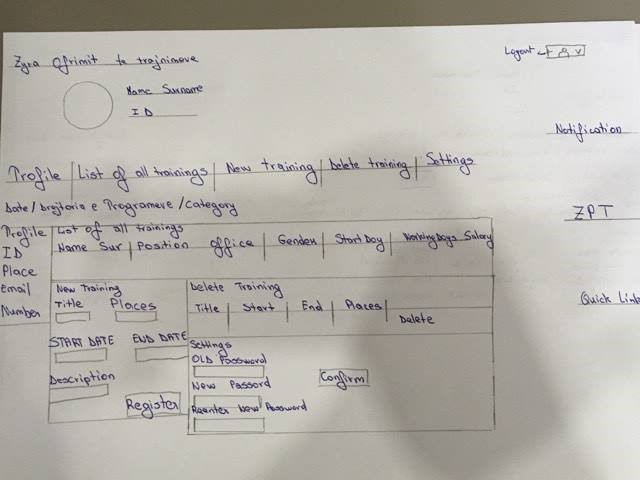 Zyra Ofrimit te trajnimeve
Logout
Name Surname
ID
Notification
Profile List of all trainings New training Delete training Settings
Date/Drejtoria e Programeve/Category
ZPT
Profile
ID
Place
Email
Number
List of all trainings
Name Sur Position Office Gender Start Day Working Days Salary
New Training
Title Places
START DATE END DATE
Description
Register
Delete Training
Title Start End Places
Delete
Settings
OLD Password
New Passord
Confirm
Reenter New Password
Quick Link